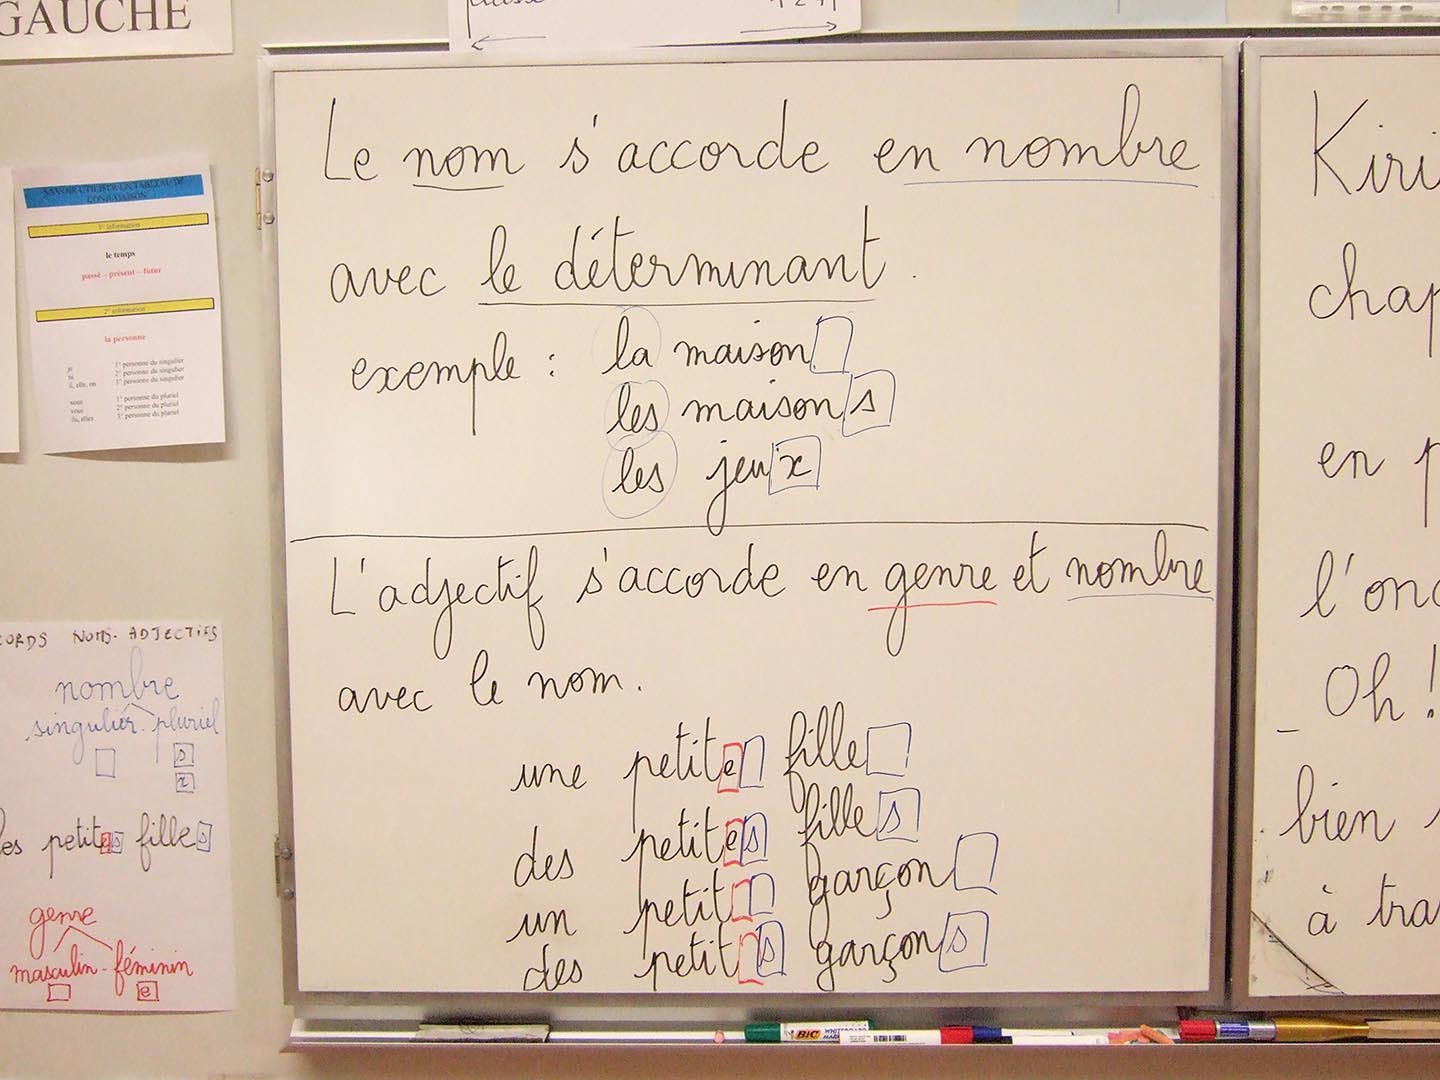 GAUCHE
SAVOIR UTILISER UN TABLEAU DE
CONJUGAISON
1° information
le temps
passé – présent – futur
2° information
la personne
je 1° personne du singulier
tu 2° personne du singulier
il, elle, on 3° personne du singulier
nous 1° personne du pluriel
vous 2° personne du pluriel
ils, elles 3° personne du pluriel
NOMS- ADJECTIFS
nombre
singulier - pluriel
s
x
petites filles
genre
masculin - féminin
e
Le nom s'accorde en nombre
avec le déterminant.
exemple : la maison
les maisons
les jeux
L'adjectif s'accorde en genre et nombre
avec le nom.
une petite fille
des petites filles
un petit garçon
des petits garçons
Kiri
chap
en p
l'onc
_ Oh !
bien
à tra
BIC WHITEBOARD